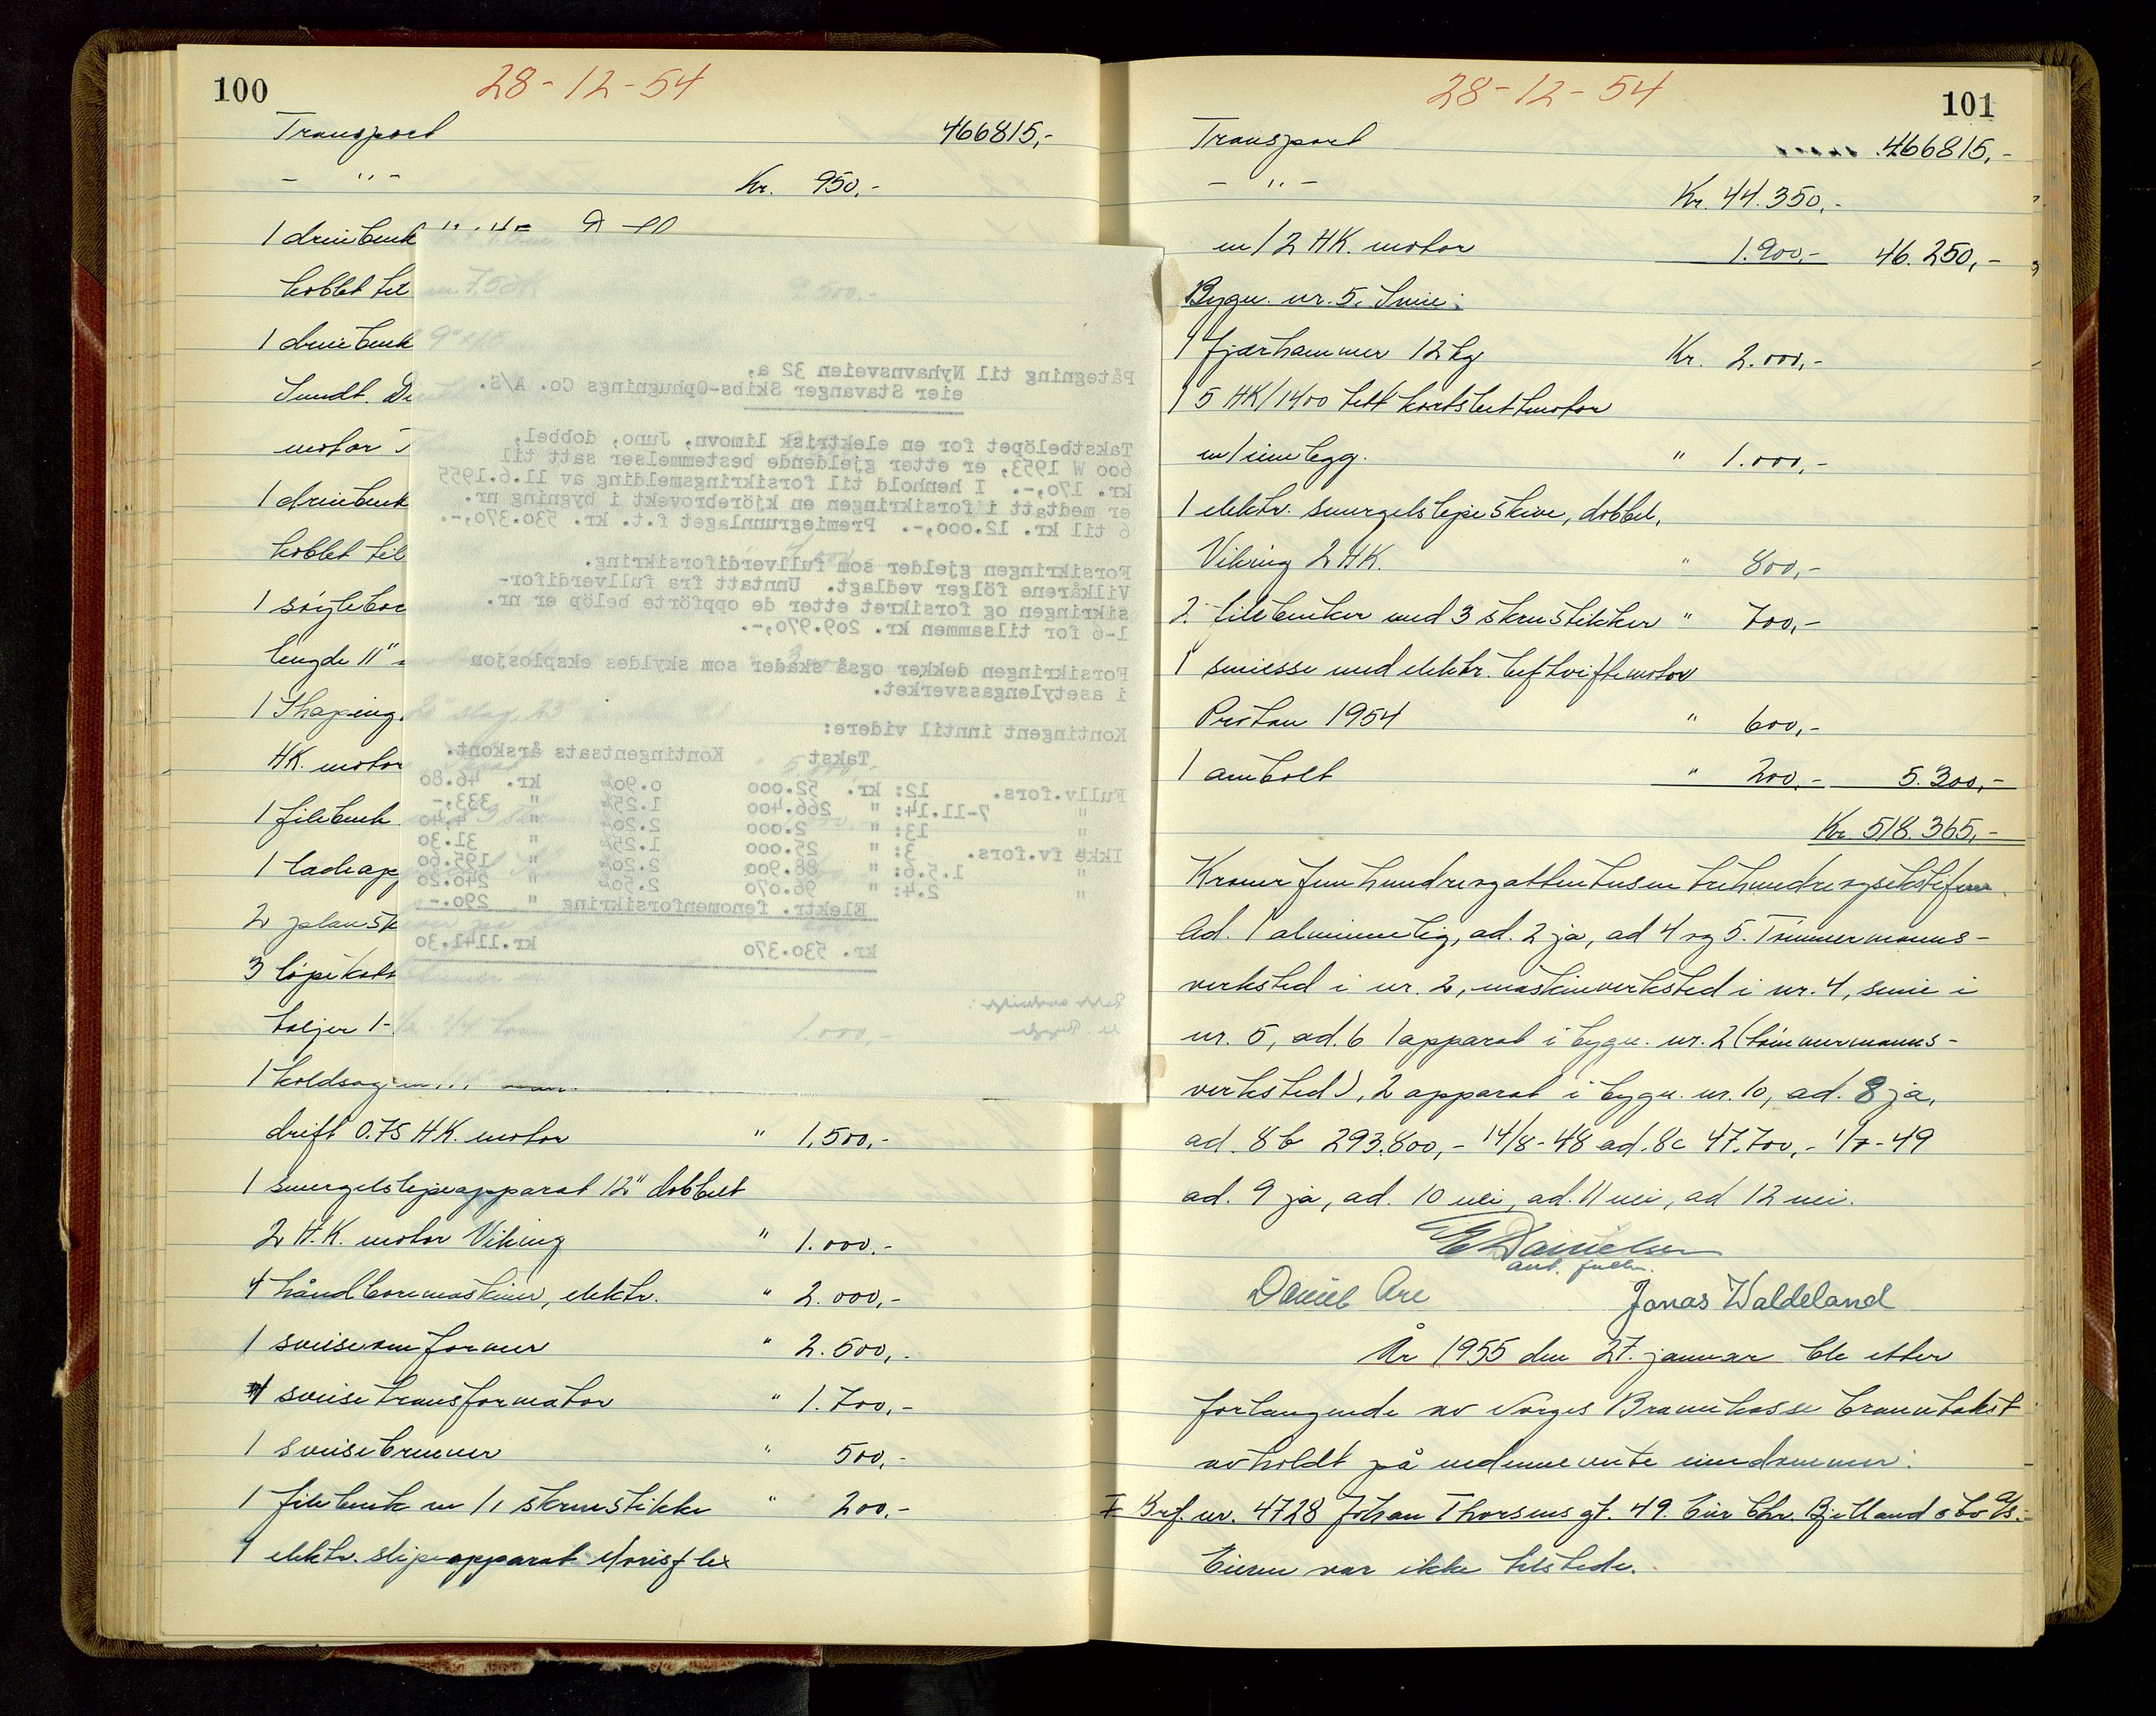 100
28-12-54
Transport 466815,-
- " - Kr. 950,-
1 dreiebenk
koblet til
1 dreiebenk
Sundt.
motor
1 dreiebenk
koblet til
1 söyle
lengde 11"
1 Shaping.
HK. motor
1 filebenk
1 ladeapp
2 plansk
3 löpekatt
taljer 1-
1 koldsag
drift 0.75 HK. motor " 1.500,-
1 smergelslipeapparat 12" dobbelt
2 H.K. motor Viking " 1.000,-
4 håndboremaskiner, elektr. " 2.000,-
1 sveiseomformer " 2.500,-
1 sveisetransformator " 1.700,-
1 sveisebrenner " 500,-
1 filebenk m/1 skrustikke " 200,-
1 elektr. slipeapparat
Påtegning til Nyhavnsveien 32 a,
eier Stavanger Skibs-Ophugnings Co. A/S.
Takstbelöpet for en elektrisk limovn, Juno, dobbel,
600 W 1953, er etter gjeldende bestemmelser satt til
kr. 170,-. I henhold til forsikringsmelding av 11.6.1955
er medtatt i forsikringen en kjörebrovekt i bygning nr.
6 til kr. 12.000,-. Premiegrunnlaget f.t. kr. 530.370,-.
Forsikringen gjelder som fullverdiforsikring.
Vilkårene fölger vedlagt. Unntatt fra fullverdifor-
sikringen og forsikret etter de oppförte belöp er nr.
1-6 for tilsammen kr. 209.970,-.
Forsikringen dekker også skader som skyldes eksplosjon
i asetylengassverket.
Kontingent inntil videre:
Takst Kontingentsats årskont.
Fullv.fors. 12: kr. 52.000 0.90‰ kr. 46.80
" 7-11.14: " 266.400 1.25‰ " 333,-
" 13: " 2.000 2.20‰ " 4.40
Ikke fv.fors. 3: " 25.000 1.25‰ " 31.30
" 1.5.6: " 88.900 2.20‰ " 195.60
" 2.4: " 96.070 2.50‰ " 240.20
Elektr. fenomenforsikring " 290.-
kr. 530.370 kr.1141.30
101
28-12-54
Transport 466815,-
- " - Kr. 44.350,-
m/2 HK. motor 1.900,- 46.250,-
Bygn. nr. 5. Smie:
1 fjærhammer 12 kg Kr. 2.000,-
1 5 HK/1400 tett kortsluttmotor
m/innlegg. " 1.000,-
1 elektr. smergelslipeskive, dobbel,
Viking 2 HK. " 800,-
2 filebenker med 3 skrustikker " 700,-
1 smiesse med elektr. luftviftemotor
Proton 1954 " 600,-
1 ambolt " 200,- 5.300,-
Kr 518.365,-
Kroner femhundreogattentusen trehundreogsekstifem.
Ad. 1 alminnelig, ad. 2 ja, ad 4 og 5. Tömmermanns-
verksted i nr. 2, maskinverksted i nr. 4, smie i
nr. 5, ad. 6 1 apparat i bygn. nr. 2 (tömmermanns-
verksted), 2 apparat i bygn. nr. 10, ad. 8 ja,
ad. 8b 293.800,- 14/8-48 ad. 8c 47.700,- 1/7-49
ad. 9 ja, ad. 10 nei, ad. 11 nei, ad 12 nei.
E Danielsen
aut. fullm.
Daniel Are Jonas Waldeland
År 1955 den 27. januar ble etter
forlangende av Norges Brannkasse branntakst
avholdt på nedennevnte eiendommer:
I Brf. nr. 4728 Johan Thorsens gt. 49. Eier Chr. Bjelland & Co A/S.
Eieren var ikke tilstede.